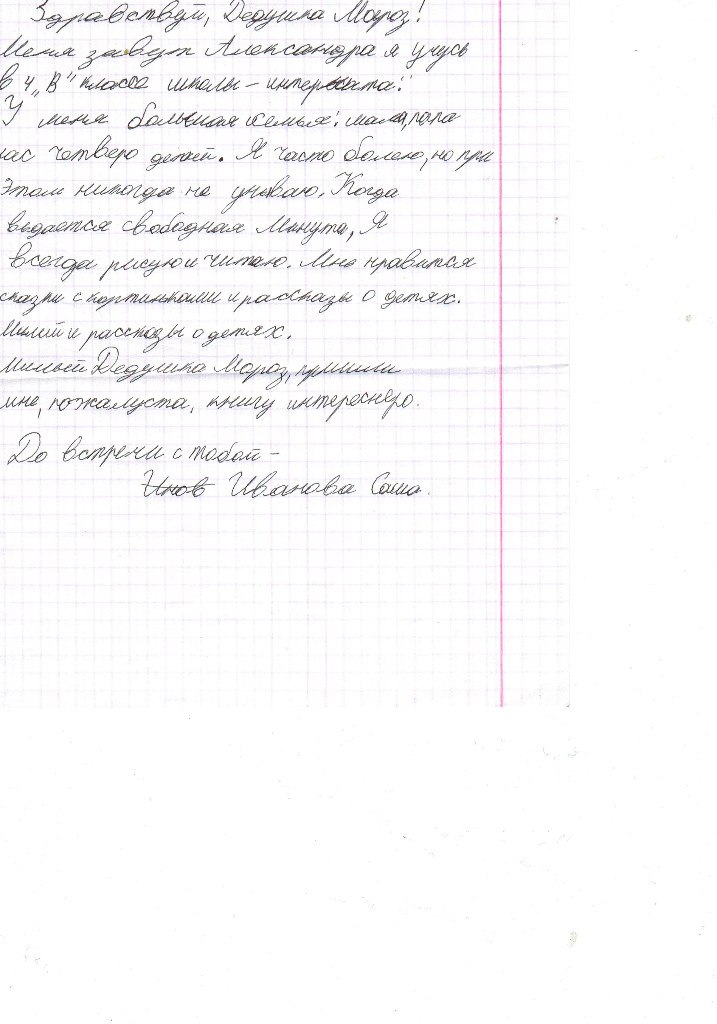 Здравствуй, Дедушка Мороз!
Меня зовут Александра я учусь
в 4 „В" классе школы-интерната.
У меня большая семья: мама, папа
нас четверо детей. Я часто болею, но при
этом никогда не унываю. Когда
выдается свободная минута, Я
всегда рисую и читаю. Мне нравится
сказки с картинками и рассказы о детях.
и рассказы о детях.
Милый Дедушка Мороз, пришли
мне, пожалуста, книгу
До встречи с тобой -
Иванова Саша.